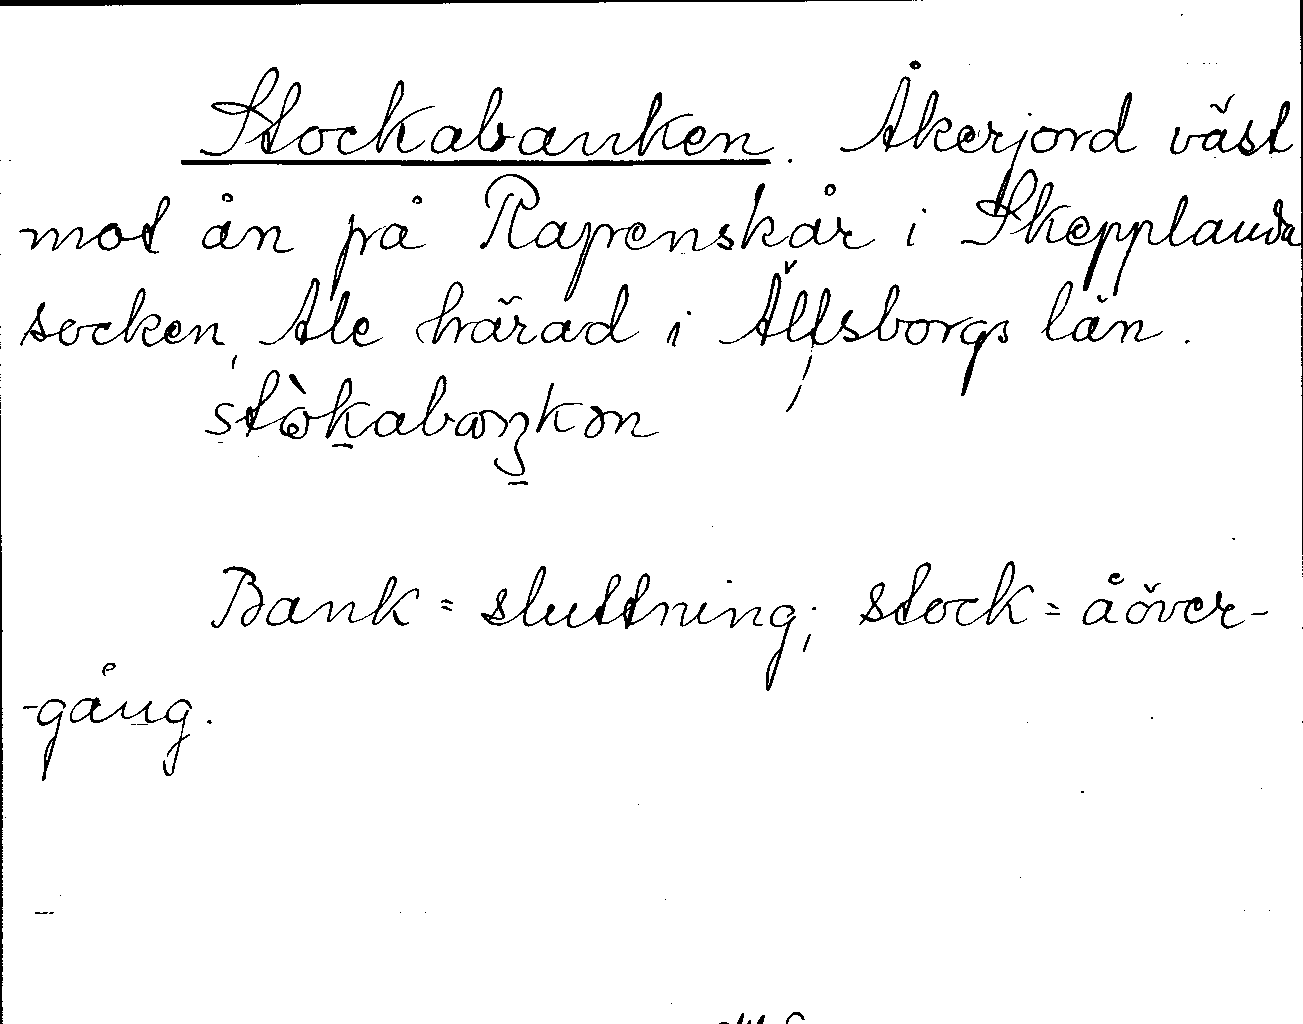 Stockabanken. Åkerjord väst
mot ån på Rapenskår i Skepplanda
socken, Ale härad i Älfsborgs län.
stòkabaŋkən
Bank = sluttning; stock = åöver-
-gång.